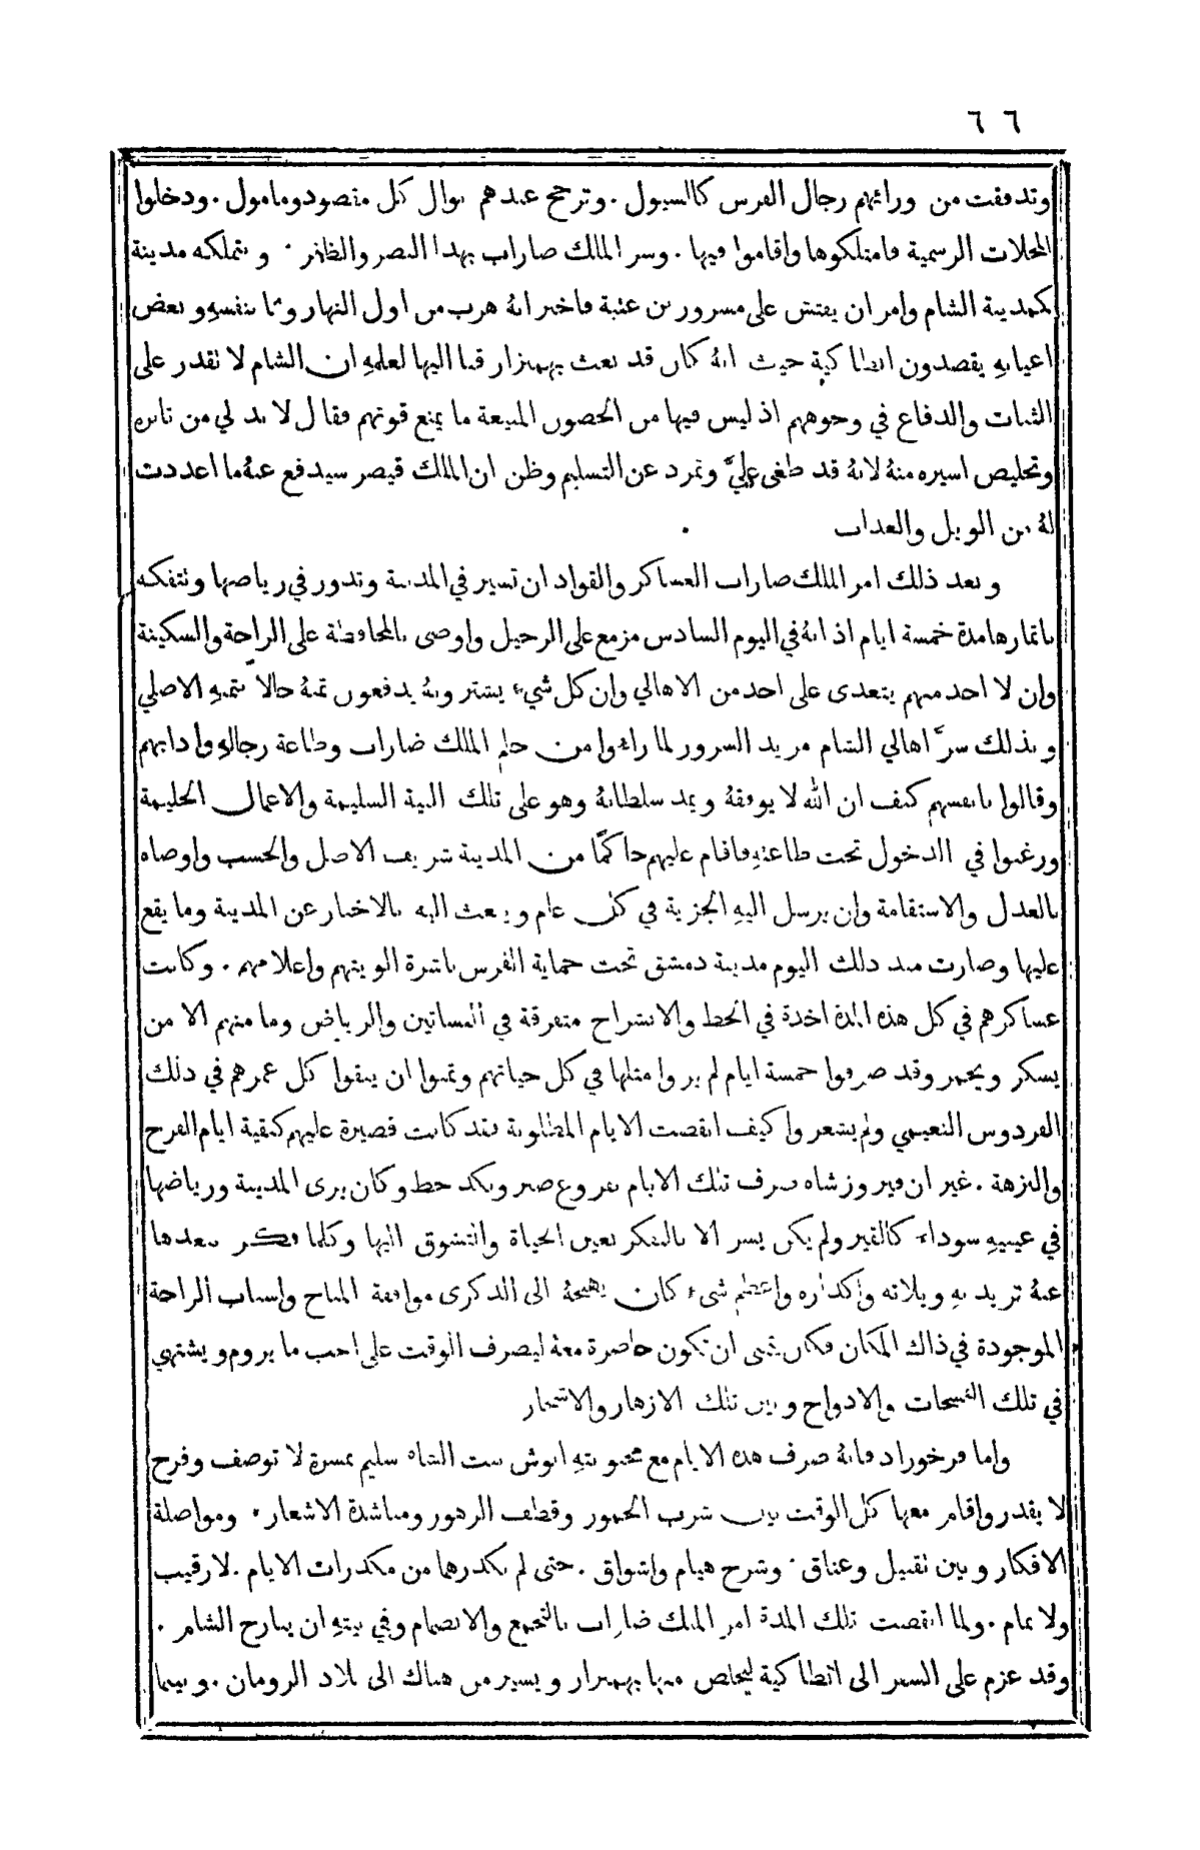 ٦٦
وتدفقت من ورائهم رجال الفرس كالسيول . وترجح عندهم نوال كل مقصود ومامول . ودخلوا
المحلات الرسمية فامتلكوها واقاموا فيها . وسر الملك ضاراب بهذا النصر والظفر . وبتملكه مدينة
كمدينة الشام وامر ان يفتش على مسرور بن عتبة فاخبر انهُ هرب من اول النهار بنفسهِ وبعض
اعيانهِ يقصدون انطاكية حيث انهُ كان قد بعث ببهمنزار قبا اليها لعلمهِ ان الشام لا تقدر على
الثبات والدفاع في وجوههم اذ ليس فيها من الحصون المنيعة ما يمنع قوتهم فقال لا بد لي من تاثره
وتخليص اسيره منهُ لانهُ قد طغى عليَّ وتمرد عن التسليم وظن ان الملك قيصر سيدفع عنهُ ما اعددت
لهُ من الويل والعذاب
وبعد ذلك امر الملك ضاراب العساكر والقواد ان تسير في المدينة وتدور في رياضها وتتفكه
باثمارها مدة خمسة ايام اذ انهُ في اليوم السادس مزمع على الرحيل واوصى بالمحافظة على الراحة والسكينة
وان لا احد منهم يتعدى على احد من الاهالي وان كل شيء يشترونهُ يدفعون ثمنهُ حالاً بثمنهِ الاصلي
وبذلك سرَّ اهالي الشام مزيد السرور لما راءوا من حلم الملك ضاراب وطاعة رجالهِ وادابهم
وقالوا بانفسهم كيف ان الله لا يوفقهُ ويمد سلطانهُ وهو على تلك النية السليمة والاعمال الحليمة
ورغبوا في الدخول تحت طاعتهِ فاقام عليهم حاكمًا من المدينة شريف الاصل والحسب واوصاه
بالعدل والاستقامة وان يرسل اليهِ الجزية في كل عام ويبعث اليه بالاخبار عن المدينة وما يقع
عليها وصارت منذ ذلك اليوم مدينة دمشق تحت حماية الفرس ناشرة الويتهم واعلامهم . وكانت
عساكرهم في كل هذه المدة اخذة في الحظ والانشراح متفرقة في البساتين والرياض وما منهم الا من
يسكر ويخمر وقد صرفوا خمسة ايام لم يروا مثلها في كل حياتهم وتمنوا ان يبقوا كل عمرهم في ذلك
الفردوس النعيمي ولم يشعروا كيف انقضت الايام المطلوبة فقد كانت قصيرة عليهم كبقية ايام الفرح
والنزهة . غير ان فيروزشاه صرف تلك الايام بفروغ صبر وبكد حظ وكان يرى المدينة ورياضها
في عينيهِ سوداء كالقير ولم يكن يسر الا بالتفكر بعين الحياة والتشوق اليها وكلما فكر ببعدها
عنهُ تزيد بهِ ويلاته واكداره واعظم شيء كان يهيجهُ الى الذكرى موافقة المناخ واسباب الراحة
الموجودة في ذاك المكان فكان يتمنى ان تكون حاضرة معهُ ليصرف الوقت على احب ما يروم ويشتهي
في تلك الفسحات والادواح وبين تلك الازهار والاثمار
واما فرخوزاد فانهُ صرف هذه الايام مع محبوبتهِ انوش بنت الشاه سليم بمسرة لا توصف وفرح
لا يقدر واقام معها كل الوقت بين شرب الخمور وقطف الزهور ومناشدة الاشعار . ومواصلة
الافكار وبين تقبيل وعناق . وشرح هيام واشواق . حتى لم يكدرهما من مكدرات الايام . لا رقيب
ولا نمام . ولما انقضت تلك المدة امر الملك ضاراب بالتجمع والانضمام وفي نيتهِ ان يبارح الشام .
وقد عزم على السفر الى انطاكية ليخلص منها بهمنزار ويسير من هناك الى بلاد الرومان . وبينما